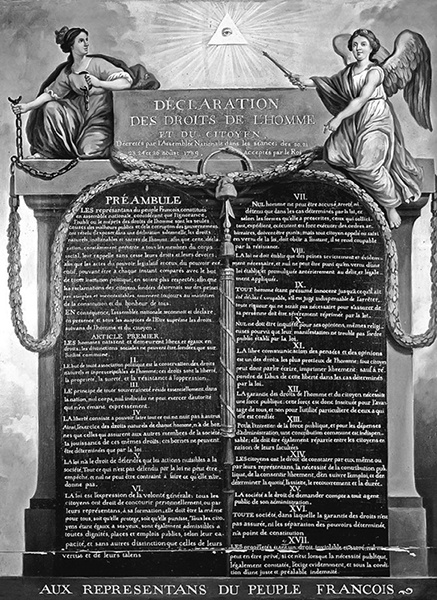 DÉCLARATION
DES DROITS DE L'HOMME
ET DU CITOYEN,
Décrétés par l'Assemblée Nationale dans les séances des 20, 21
23, 24 et 26 août 1789, acceptés par le Roi
PRÉAMBULE
LES représentans du peuple François, constitués
en assemblée nationale, considérant que l'ignorance,
l'oubli ou le mépris des droits de l'homme sont les seules
causes des malheurs publics et de la corruption des gouvernemens
ont résolu d'exposer, dans une déclaration solemnelle, les droits
naturels, inaliénables et sacrés de l'homme, afin que cette décla-
ration, constamment présente à tous les membres du corps
social, leur rappelle sans cesse leurs droits et leurs devoirs,
afin que les actes du pouvoir législatif et ceux du pouvoir exé-
cutif, pouvant être à chaque instant comparés avec le but
de toute institution politique, en soient plus respectés, afin que
les réclamations des citoyens, fondées désormais sur des princi-
pes simples et incontestables, tournent toujours au maintien
de la constitution et du bonheur de tous.
EN conséquence, l'assemblée nationale reconnoît et déclare
en présence et sous les auspices de l'Être suprême les droits
suivans de l'homme et du citoyen.
ARTICLE PREMIER.
LES hommes naissent et demeurent libres et égaux en
droits; les distinctions sociales ne peuvent être fondées que sur
l'utilité commune.
II.
LE but de toute association politique est la conservation des droits
naturels et imprescriptibles de l'homme; ces droits sont la liberté,
la propriété, la sureté, et la résistance à l'oppression.
III.
LE principe de toute souveraineté réside essentiellement dans
la nation, nul corps, nul individu ne peut exercer d'autorité
qui n'en émane expressément.
IV.
LA liberté consiste à pouvoir faire tout ce qui ne nuit pas à autrui
Ainsi, l'exercice des droits naturels de chaque homme, n'a de bor-
nes que celles qui assurent aux autres membres de la société
la jouissance de ces mêmes droits; ces bornes ne peuvent
être déterminées que par la loi.
V.
LA loi n'a le droit de défendre que les actions nuisibles à la
société. Tout ce qui n'est pas défendu par la loi ne peut être
empêché, et nul ne peut être contraint à faire ce qu'elle n'or-
donne pas.
VI.
LA loi est l'expression de la volonté générale; tous les
citoyens ont droit de concourir personnellement, ou par
leurs représentans, à sa formation; elle doit être la même
pour tous, soit qu'elle protege, soit qu'elle punisse. Tous les citoy-
ens étant égaux à ses yeux, sont également admissibles à
toutes dignités, places et emplois publics, selon leur ca-
pacité, et sans autres distinctions que celles de leurs
vertus et de leurs talens.
VII.
NUL homme ne peut être accusé, arrêté, ni
détenu que dans les cas déterminés par la loi, et
selon les formes qu'elle a prescrites, ceux qui sollici-
tent, expédient, exécutent ou font exécuter des ordres ar-
bitraires, doivent être punis; mais tout citoyen appelé ou saisi
en vertu de la loi, doit obéir à l'instant, il se rend coupable
par la résistance.
VIII.
LA loi ne doit établir que des peines strictement et évidem-
ment nécessaires, et nul ne peut être puni qu'en vertu d'une
loi établie et promulguée antérieurement au délit, et légale-
ment appliquée.
IX.
TOUT homme étant présumé innocent jusqu'à ce qu'il ait
été déclaré coupable, s'il est jugé indispensable de l'arrêter,
toute rigueur qui ne serait pas nécessaire pour s'assurer de
sa personne doit être sévérement réprimée par la loi.
X.
NUL ne doit être inquiété pour ses opinions, mêmes religi-
euses pourvu que leur manifestation ne trouble pas l'ordre
public établi par la loi.
XI.
LA libre communication des pensées et des opinions
est un des droits les plus précieux de l'homme; tout citoyen
peut donc parler, écrire, imprimer librement, sauf à ré-
pondre de l'abus de cette liberté dans les cas déterminés
par la loi.
XII.
LA garantie des droits de l'homme et du citoyen nécessite
une force publique; cette force est donc instituée pour l'avan-
tage de tous, et non pour l'utilité particulière de ceux à qui
elle est confiée.
XIII.
POUR l'entretien de la force publique, et pour les dépenses
d'administration, une contribution commune est indispen-
sable; elle doit être également répartie entre les citoyens en
raison de leurs facultés.
XIV.
LES citoyens ont le droit de constater par eux même ou
par leurs représentans, la nécessité de la contribution pub-
lique, de la consentir librement, d'en suivre l'emploi, et d'en
déterminer la quotité, l'assiette, le recouvrement et la durée.
XV.
LA société a le droit de demander compte à tout agent
public de son administration.
XVI.
TOUTE société, dans laquelle la garantie des droits n'est
pas assurée, ni la séparation des pouvoirs déterminée,
n'a point de constitution
XVII.
LES propriétés étant un droit inviolable et sacré, nul ne
peut en être privé, si ce n'est lorsque la nécessité publique,
légalement constatée, l'exige évidemment, et sous la condi-
tion d'une juste et préalable indemnité.
AUX REPRESENTANS DU PEUPLE FRANCOIS